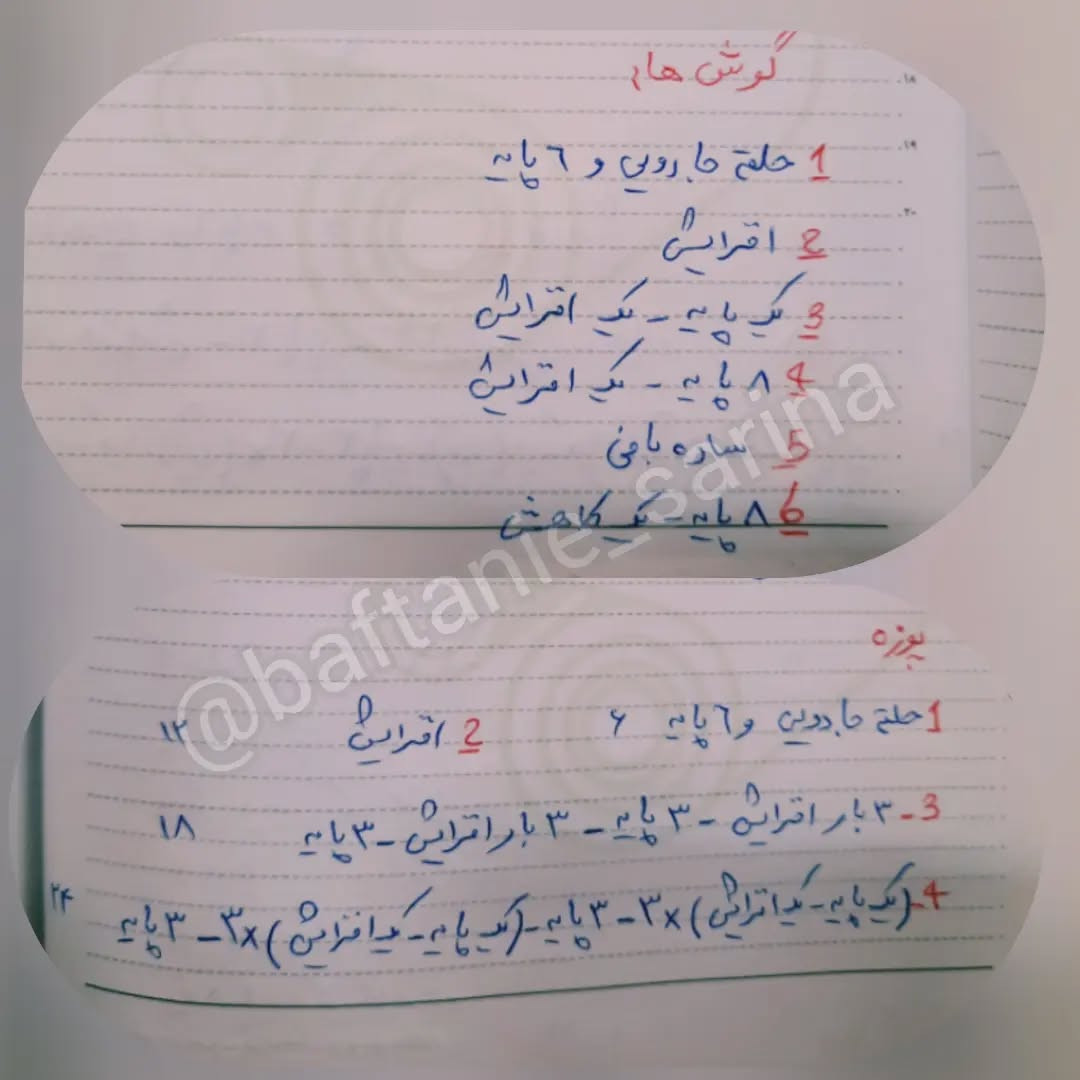 گوش ها،
1 حلقه جادویی و ٦ پایه
2 افزایش
3 یک پایه - یک افزایش
4 ۸ پایه - یک افزایش
5 ساده بافی
6 ۸ پایه - یک کاهش
@baftanie_sarina
پوزه
1 حلقه جادویی و ٦ پایه ۶ 2 افزایش ۱۲
3 - ۳ بار افزایش - ۳ پایه - ۳ بار افزایش - ۳ پایه ۱۸
4 - (یک پایه - یک افزایش) ×۳ - ۳ پایه - (یک پایه - یک افزایش) ×۳ - ۳ پایه ۲۴